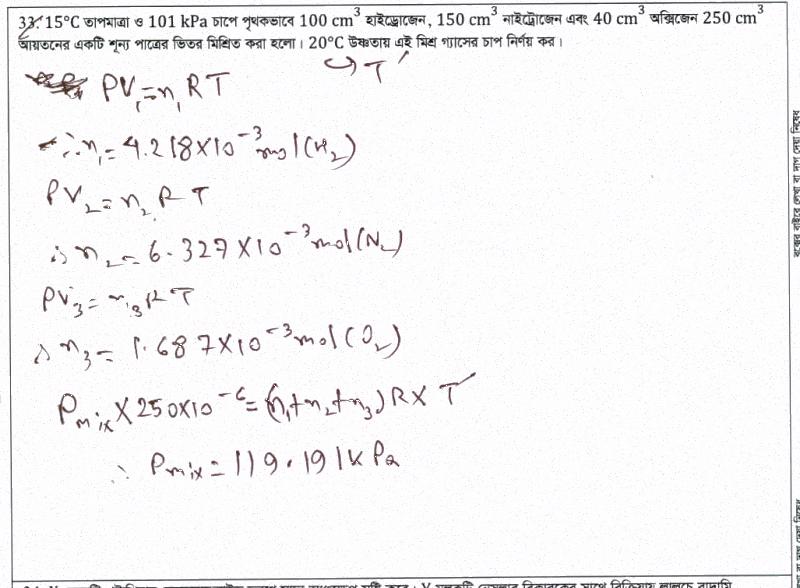 33. 15°C তাপমাত্রা ও 101 kPa চাপে পৃথকভাবে 100 cm³ হাইড্রোজেন, 150 cm³ নাইট্রোজেন এবং 40 cm³ অক্সিজেন 250 cm³
আয়তনের একটি শূন্য পাত্রের ভিতর মিশ্রিত করা হলো। 20°C উষ্ণতায় এই মিশ্র গ্যাসের চাপ নির্ণয় কর।
↪ T′
PV₁ = n₁RT
∴ n₁ = 4.218×10⁻³ mol (H₂)
PV₂ = n₂RT
∴ n₂ = 6.327×10⁻³ mol (N₂)
PV₃ = n₃RT
∴ n₃ = 1.687×10⁻³ mol (O₂)
Pmix × 250×10⁻⁶ = (n₁+n₂+n₃) R × T′
∴ Pmix = 119.191 kPa